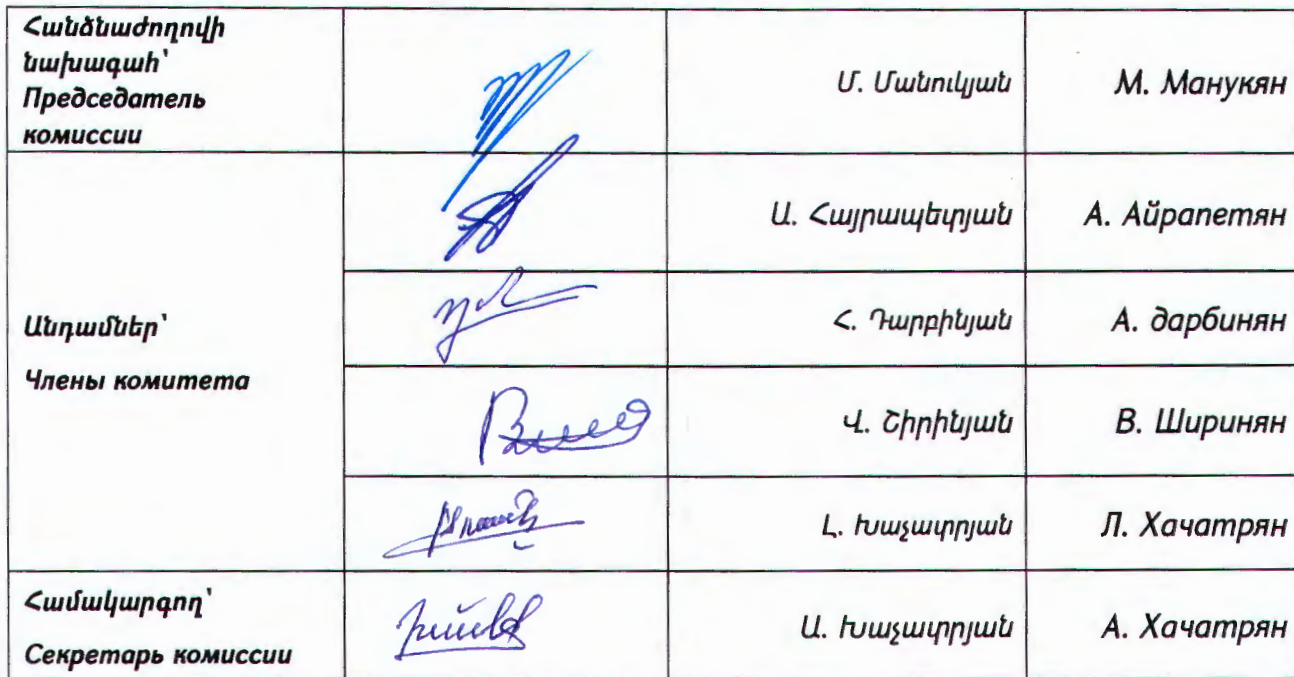 Հանձնաժողովի
նախագահ՝
Председатель
комиссии
Մ. Մանուկյան
М. Манукян
Ա. Հայրապետյան
А. Айрапетян
Անդամներ՝
Члены комитета
Հ. Դարբինյան
А. дарбинян
Վ. Շիրինյան
В. Ширинян
Լ. Խաչատրյան
Л. Хачатрян
Համակարգող՝
Секретарь комиссии
Ա. Խաչատրյան
А. Хачатрян